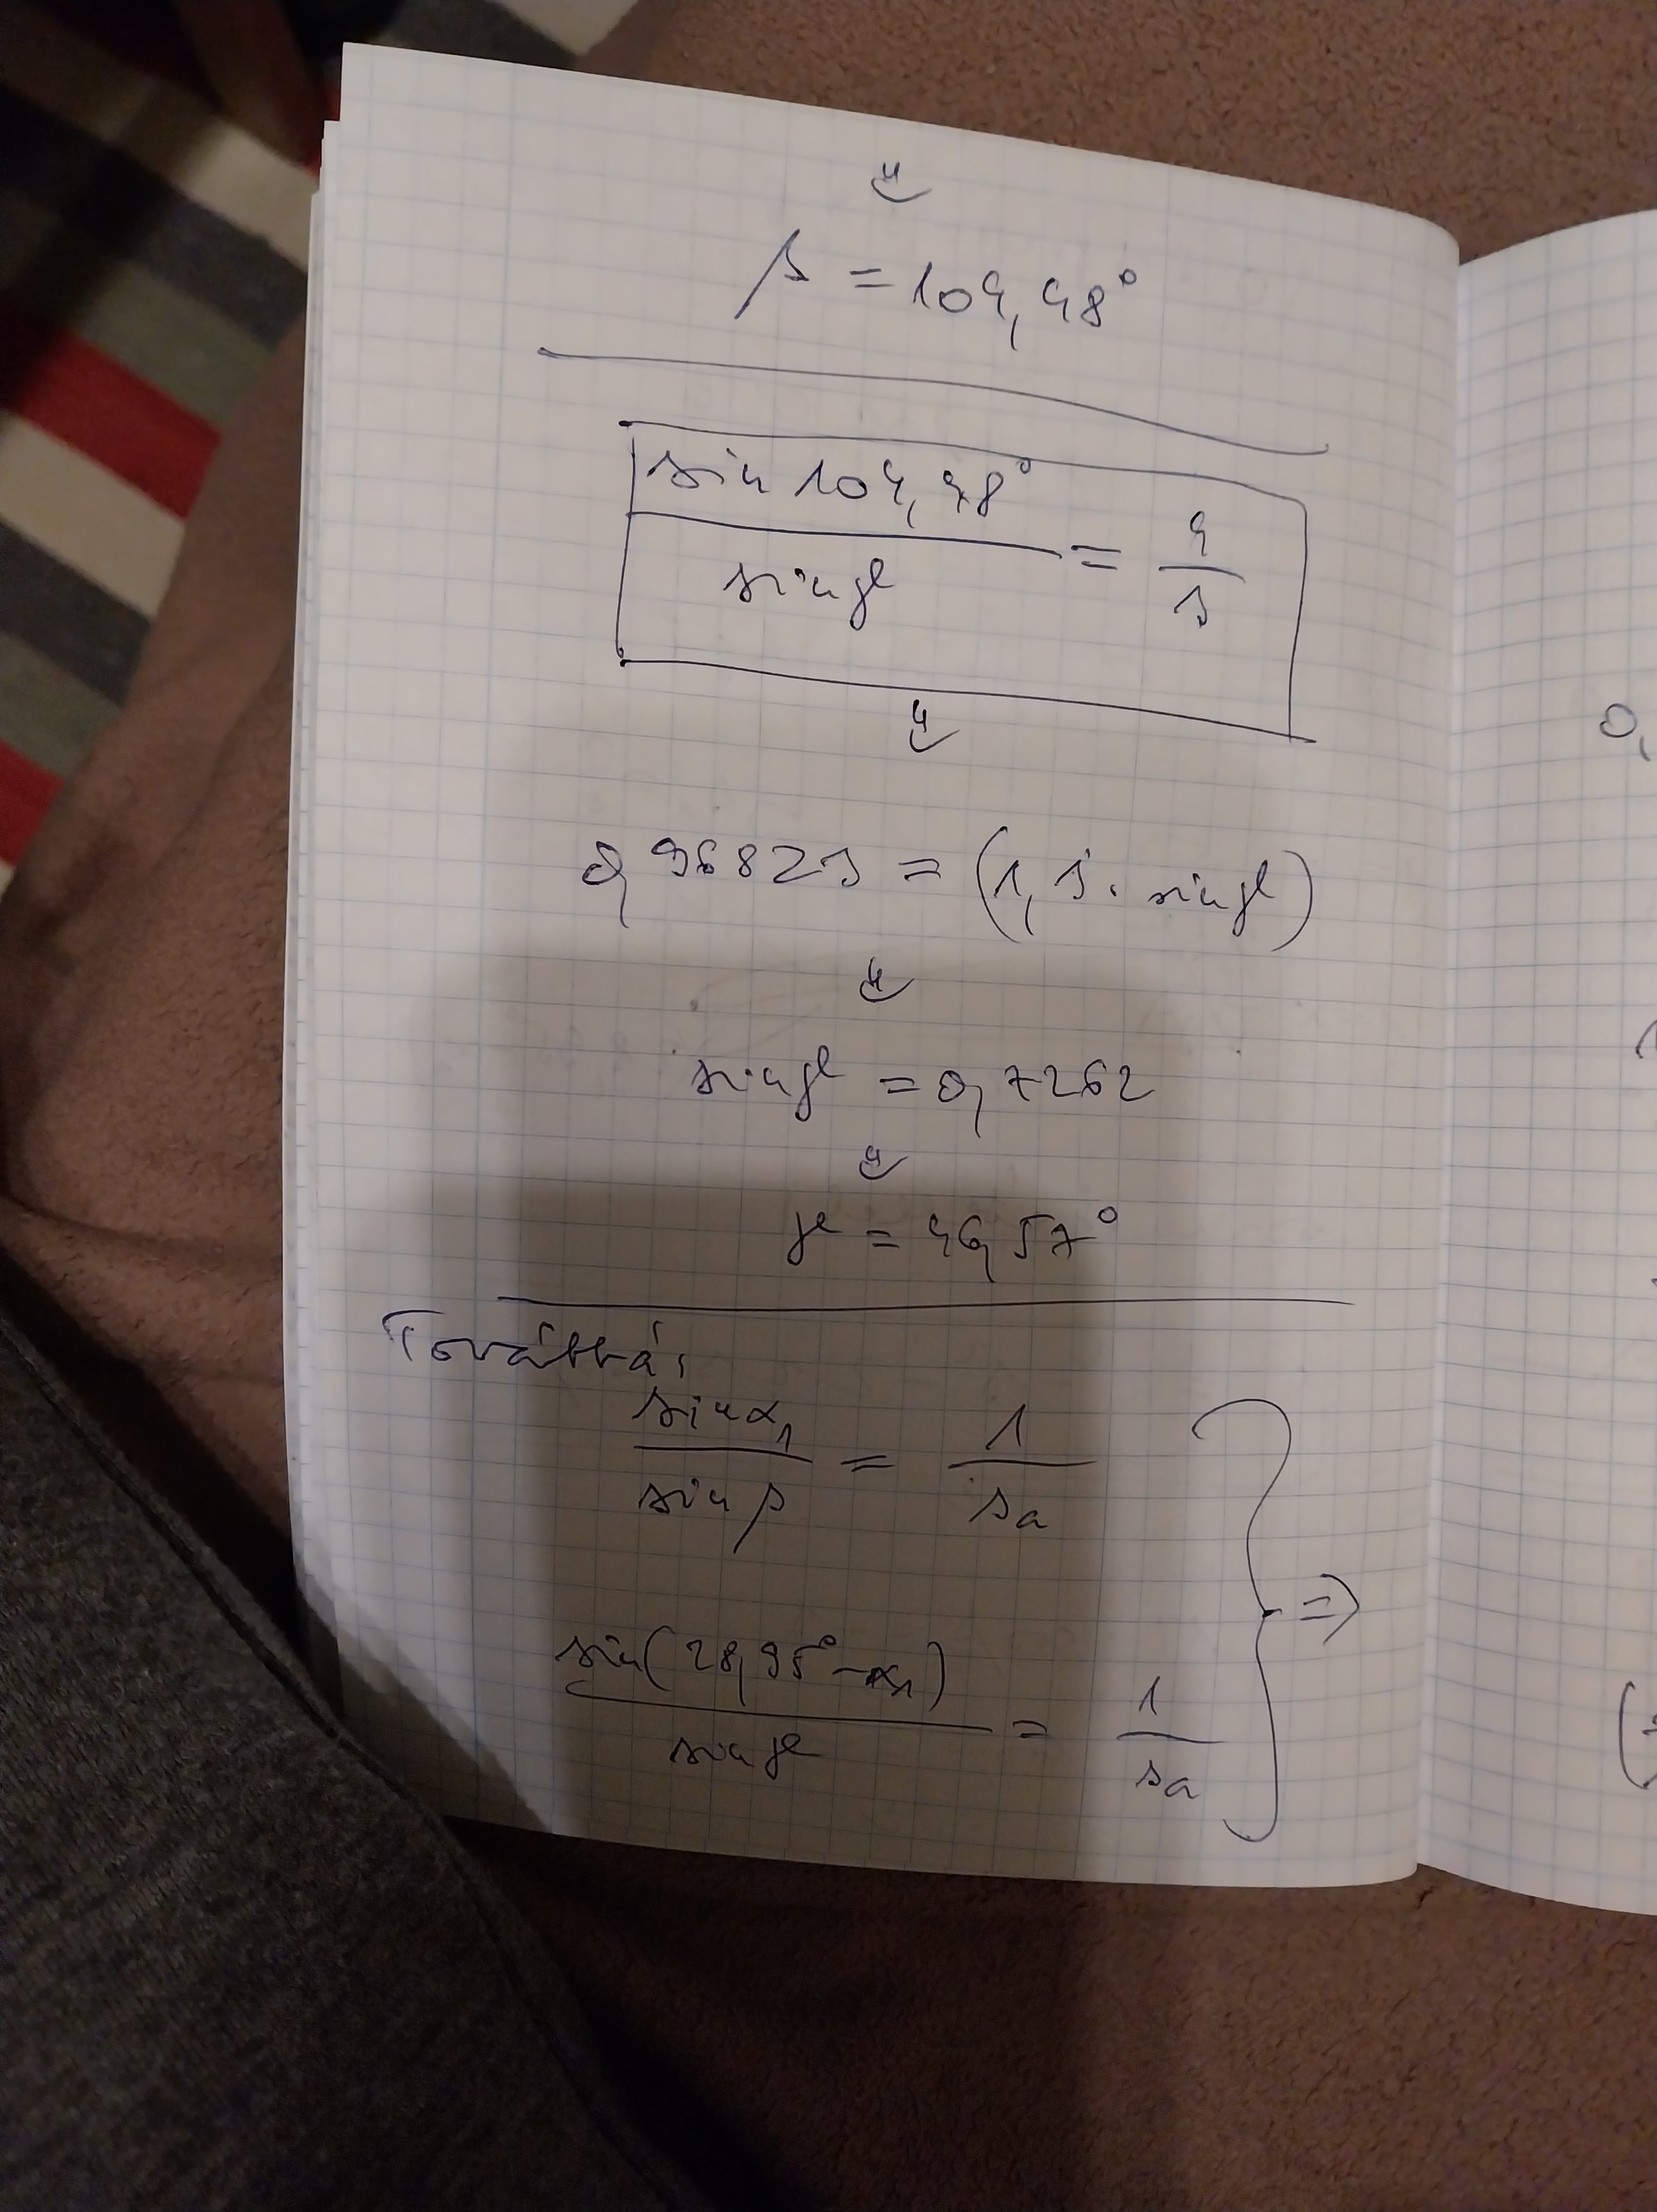 ⇓
β = 104,48°
sin 104,48° / sin γ = 4 / 3
⇓
0,96823 = (1,3̇ · sin γ)
⇓
sin γ = 0,7262
⇓
γ = 46,57°
Továbbá,
sin α₁ / sin β = 1 / sa
⇒
sin(28,95° - α₁) / sin γ = 1 / sa
0,